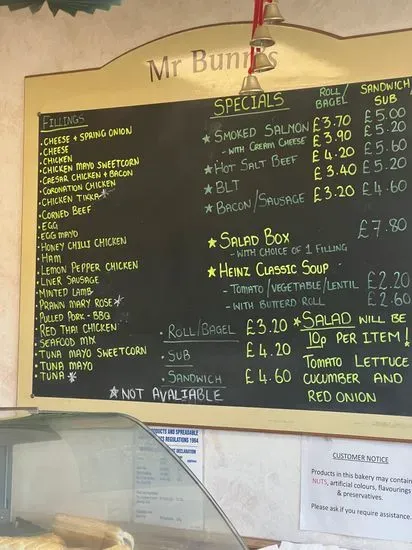 Mr Bunn's
FILLINGS
• CHEESE + SPRING ONION
• CHEESE
• CHICKEN
• CHICKEN MAYO SWEETCORN
• CAESAR CHICKEN + BACON
• CORONATION CHICKEN
• CHICKEN TIKKA ★
• CORNED BEEF
• EGG
• EGG MAYO
• HONEY CHILLI CHICKEN
• HAM
• LEMON PEPPER CHICKEN
• LIVER SAUSAGE
• MINTED LAMB
• PRAWN MARY ROSE ★
• PULLED PORK - BBQ
• RED THAI CHICKEN
• SEAFOOD MIX
• TUNA MAYO SWEETCORN
• TUNA MAYO
• TUNA ★
★ NOT AVALIABLE
SPECIALS ROLL/BAGEL SANDWICH/SUB
★ SMOKED SALMON £3.70 £5.00
- WITH CREAM CHEESE £3.90 £5.20
★ HOT SALT BEEF £4.20 £5.60
★ BLT £3.40 £5.20
★ BACON/SAUSAGE £3.20 £4.60
★ SALAD BOX £7.80
- WITH CHOICE OF 1 FILLING
★ HEINZ CLASSIC SOUP
- TOMATO/VEGETABLE/LENTIL £2.20
- WITH BUTTERD ROLL £2.60
• ROLL/BAGEL £3.20
• SUB £4.20
• SANDWICH £4.60
★ SALAD WILL BE
10p PER ITEM!
TOMATO LETTUCE
CUCUMBER AND
RED ONION
PRODUCTS AND SPREADABLE
REGULATIONS 1984
CUSTOMER NOTICE
Products in this bakery may contain
NUTS, artificial colours, flavourings
& preservatives.
Please ask if you require assistance.